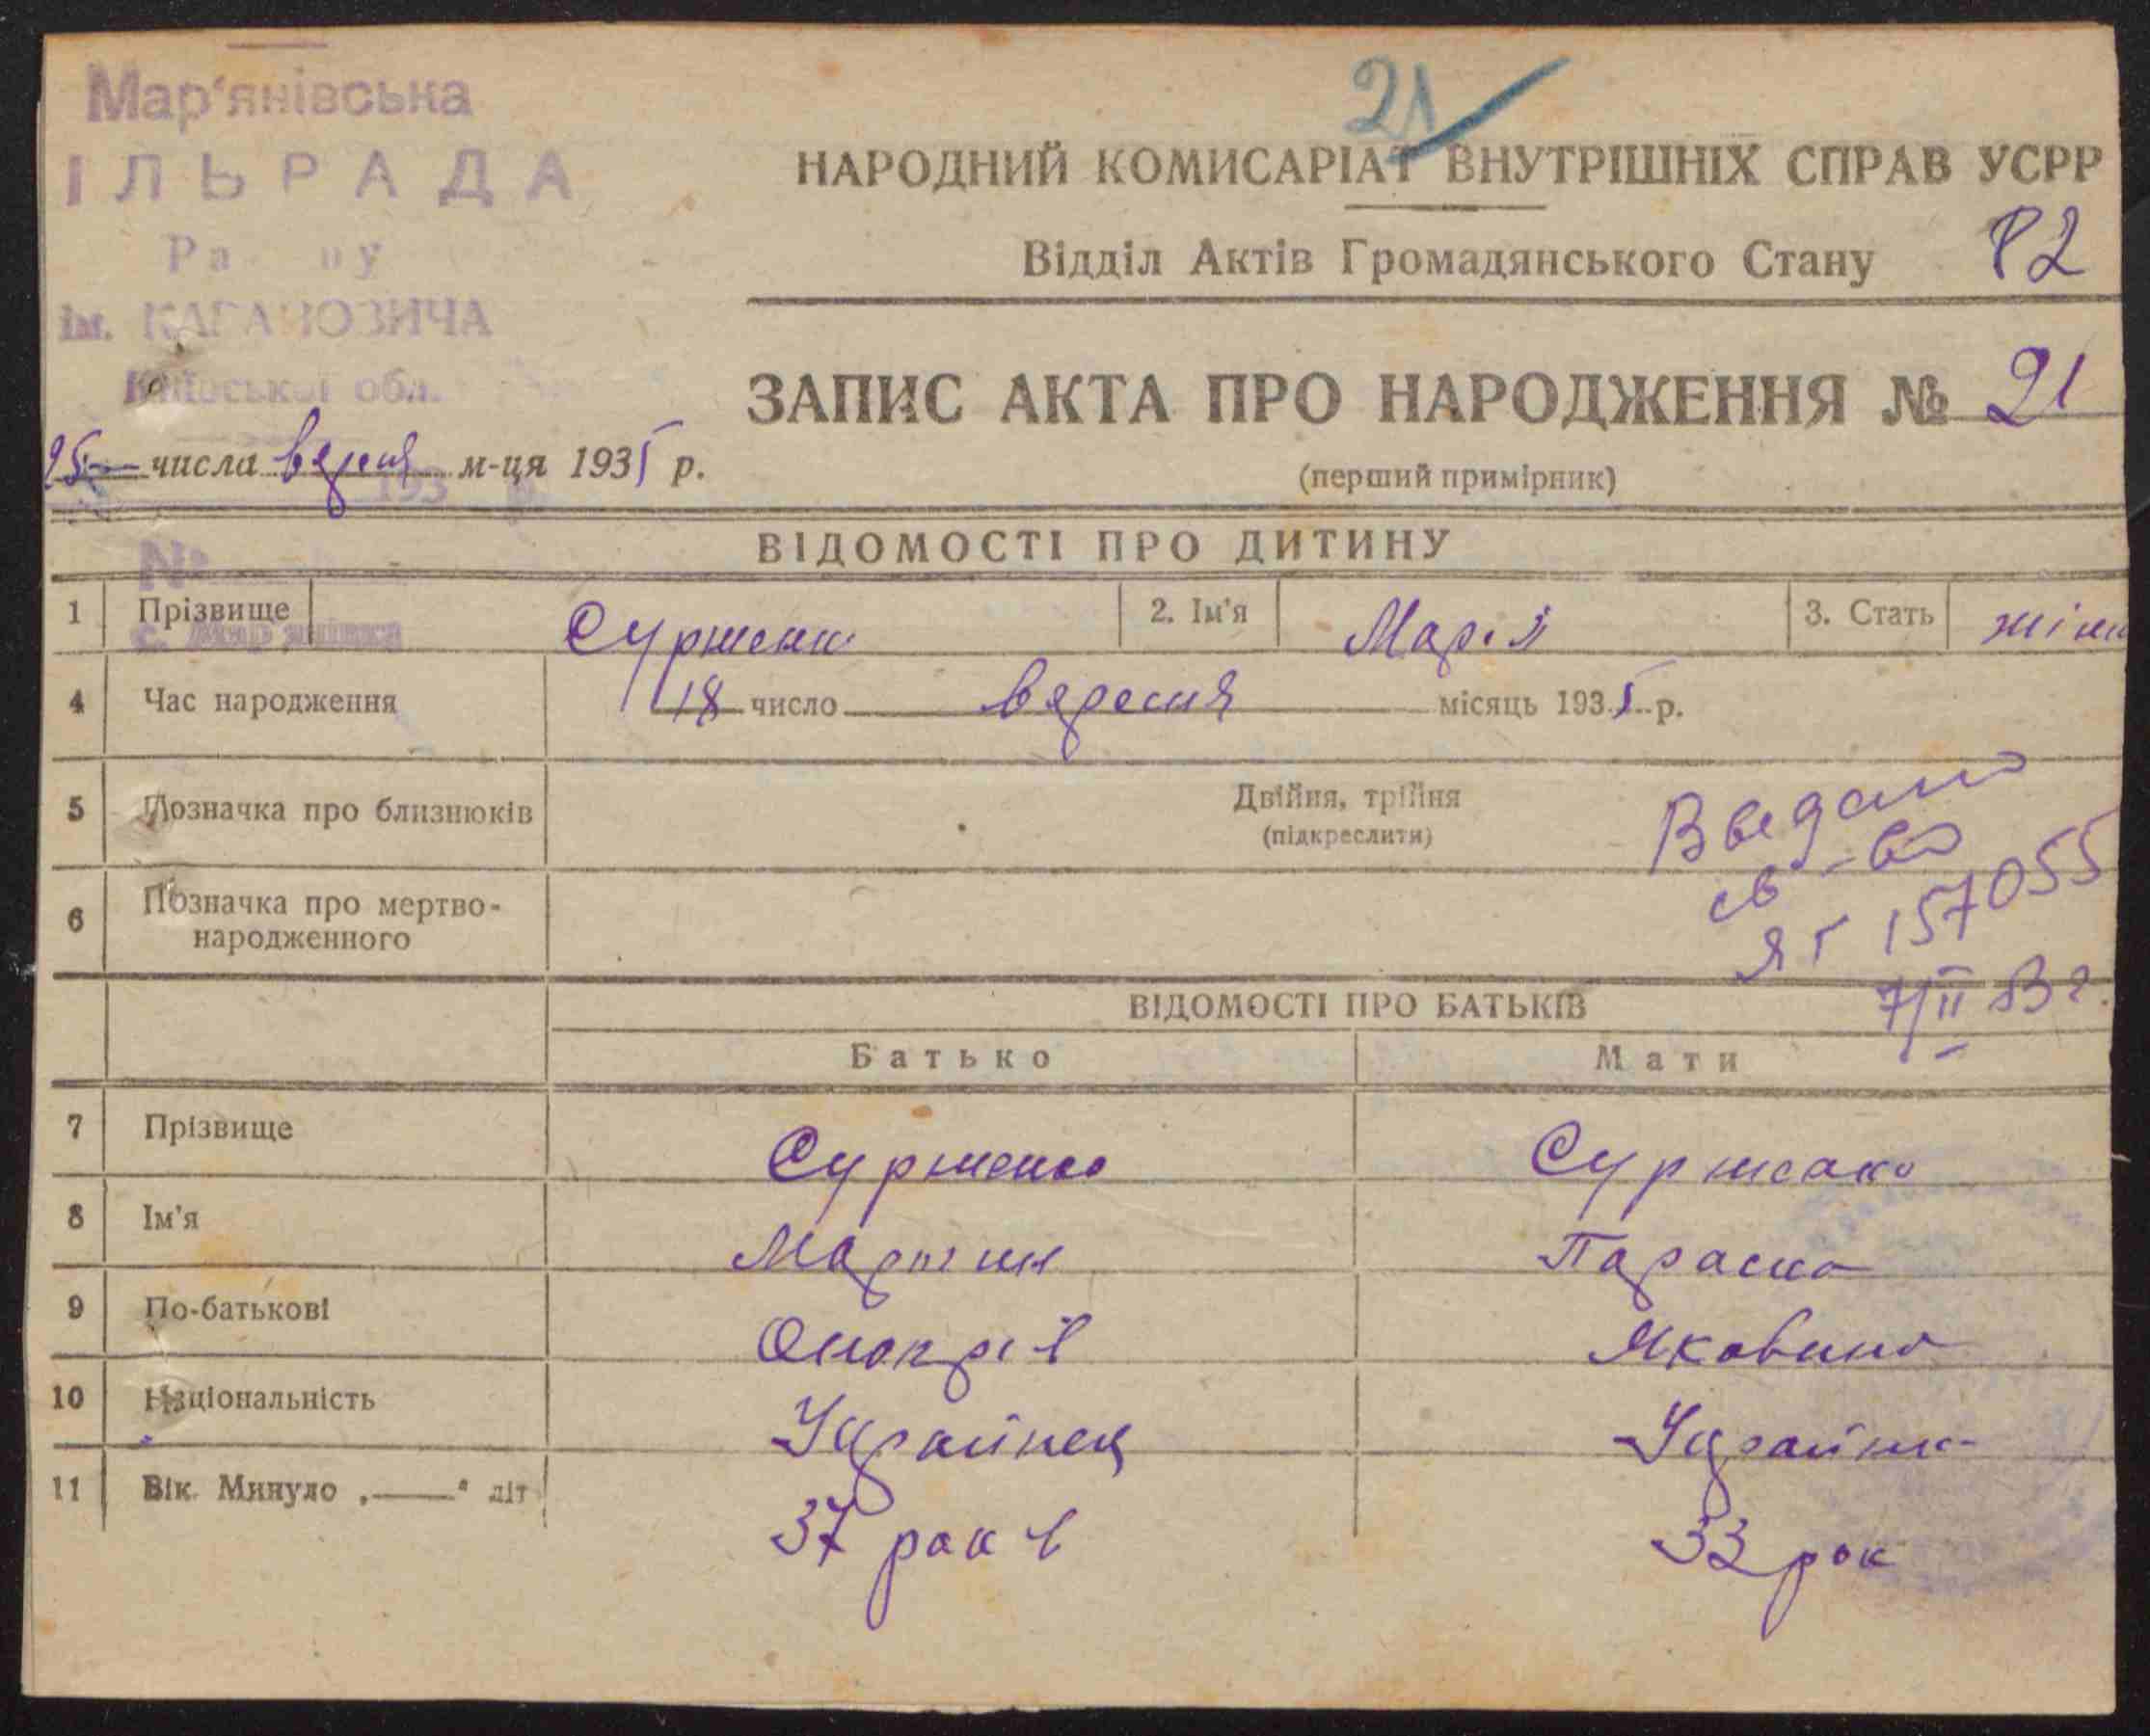 Мар'янівська
ІЛЬРАДА
ім. КАГАНОВИЧА
Київської обл.
21
НАРОДНИЙ КОМИСАРІАТ ВНУТРІШНІХ СПРАВ УСРР
Відділ Актів Громадянського Стану 82
ЗАПИС АКТА ПРО НАРОДЖЕННЯ № 21
25 числа вересня м-ця 1935 р.
(перший примірник)
ВІДОМОСТІ ПРО ДИТИНУ
№
с. Мар'янівка
1 Прізвище 2. Ім'я Марія 3. Стать жіно
4 Час народження 18 число вересня місяць 1935 р.
5 Позначка про близнюків Двійня, трійня
(підкреслити)
6 Позначка про мертво-
народженного
Выдано
св-во
ЯГ 157055
7/II 83 г.
ВІДОМОСТІ ПРО БАТЬКІВ
Батько Мати
7 Прізвище
8 Ім'я Мартин Параска
9 По-батькові Яковина
10 Національність Українец Українка
11 Вік. Минуло „——" літ 37 років 33 рок